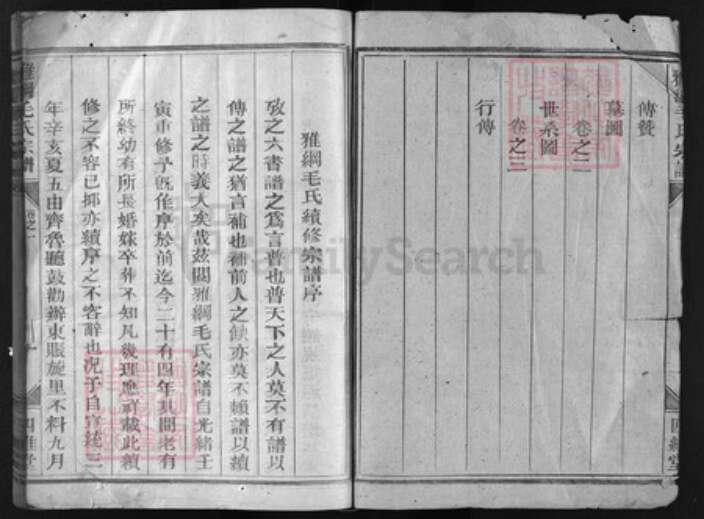 傳贊
墓圖
卷之二
世系圖
卷之三
行傳
雅綱毛氏續修宗譜序
攷之六書譜之爲言普也普天下之人莫不有譜以
傳之譜之猶言補也補前人之缺亦莫不賴譜以續
之譜之時義大矣哉茲閱雅綱毛氏宗譜自光緒壬
寅重修予旣作序於前迄今二十有四年其間老有
所終幼有所長婚嫁卒葬不知凡幾理應詳載此續
修之不容已抑亦續序之不容辭也況予自宣統三
年辛亥夏五由齊魯聽鼓勸辦東賑旋里不料九月
雅綱毛氏宗譜
卷之一
FamilySearch